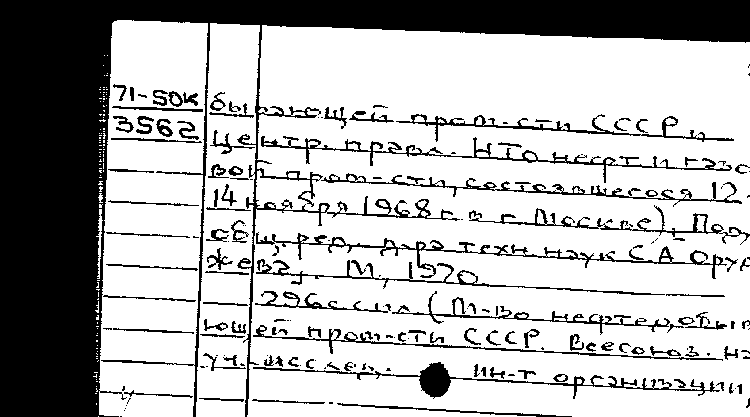 71-50К бывающей пром-сти СССР и
3562 Центр. правл. НТО нефт. и газо
вой пром-сти, состоявшегося 12-
14 ноября 1968 г. в г. Москве). Под
общ. ред. д-ра техн. наук С.А. Оруд
жева]. М., 1970.
296 с. с ил. (М-во нефтедобыв
ющей пром-сти СССР. Всесоюз. на
уч.-исслед. ин-т организации,